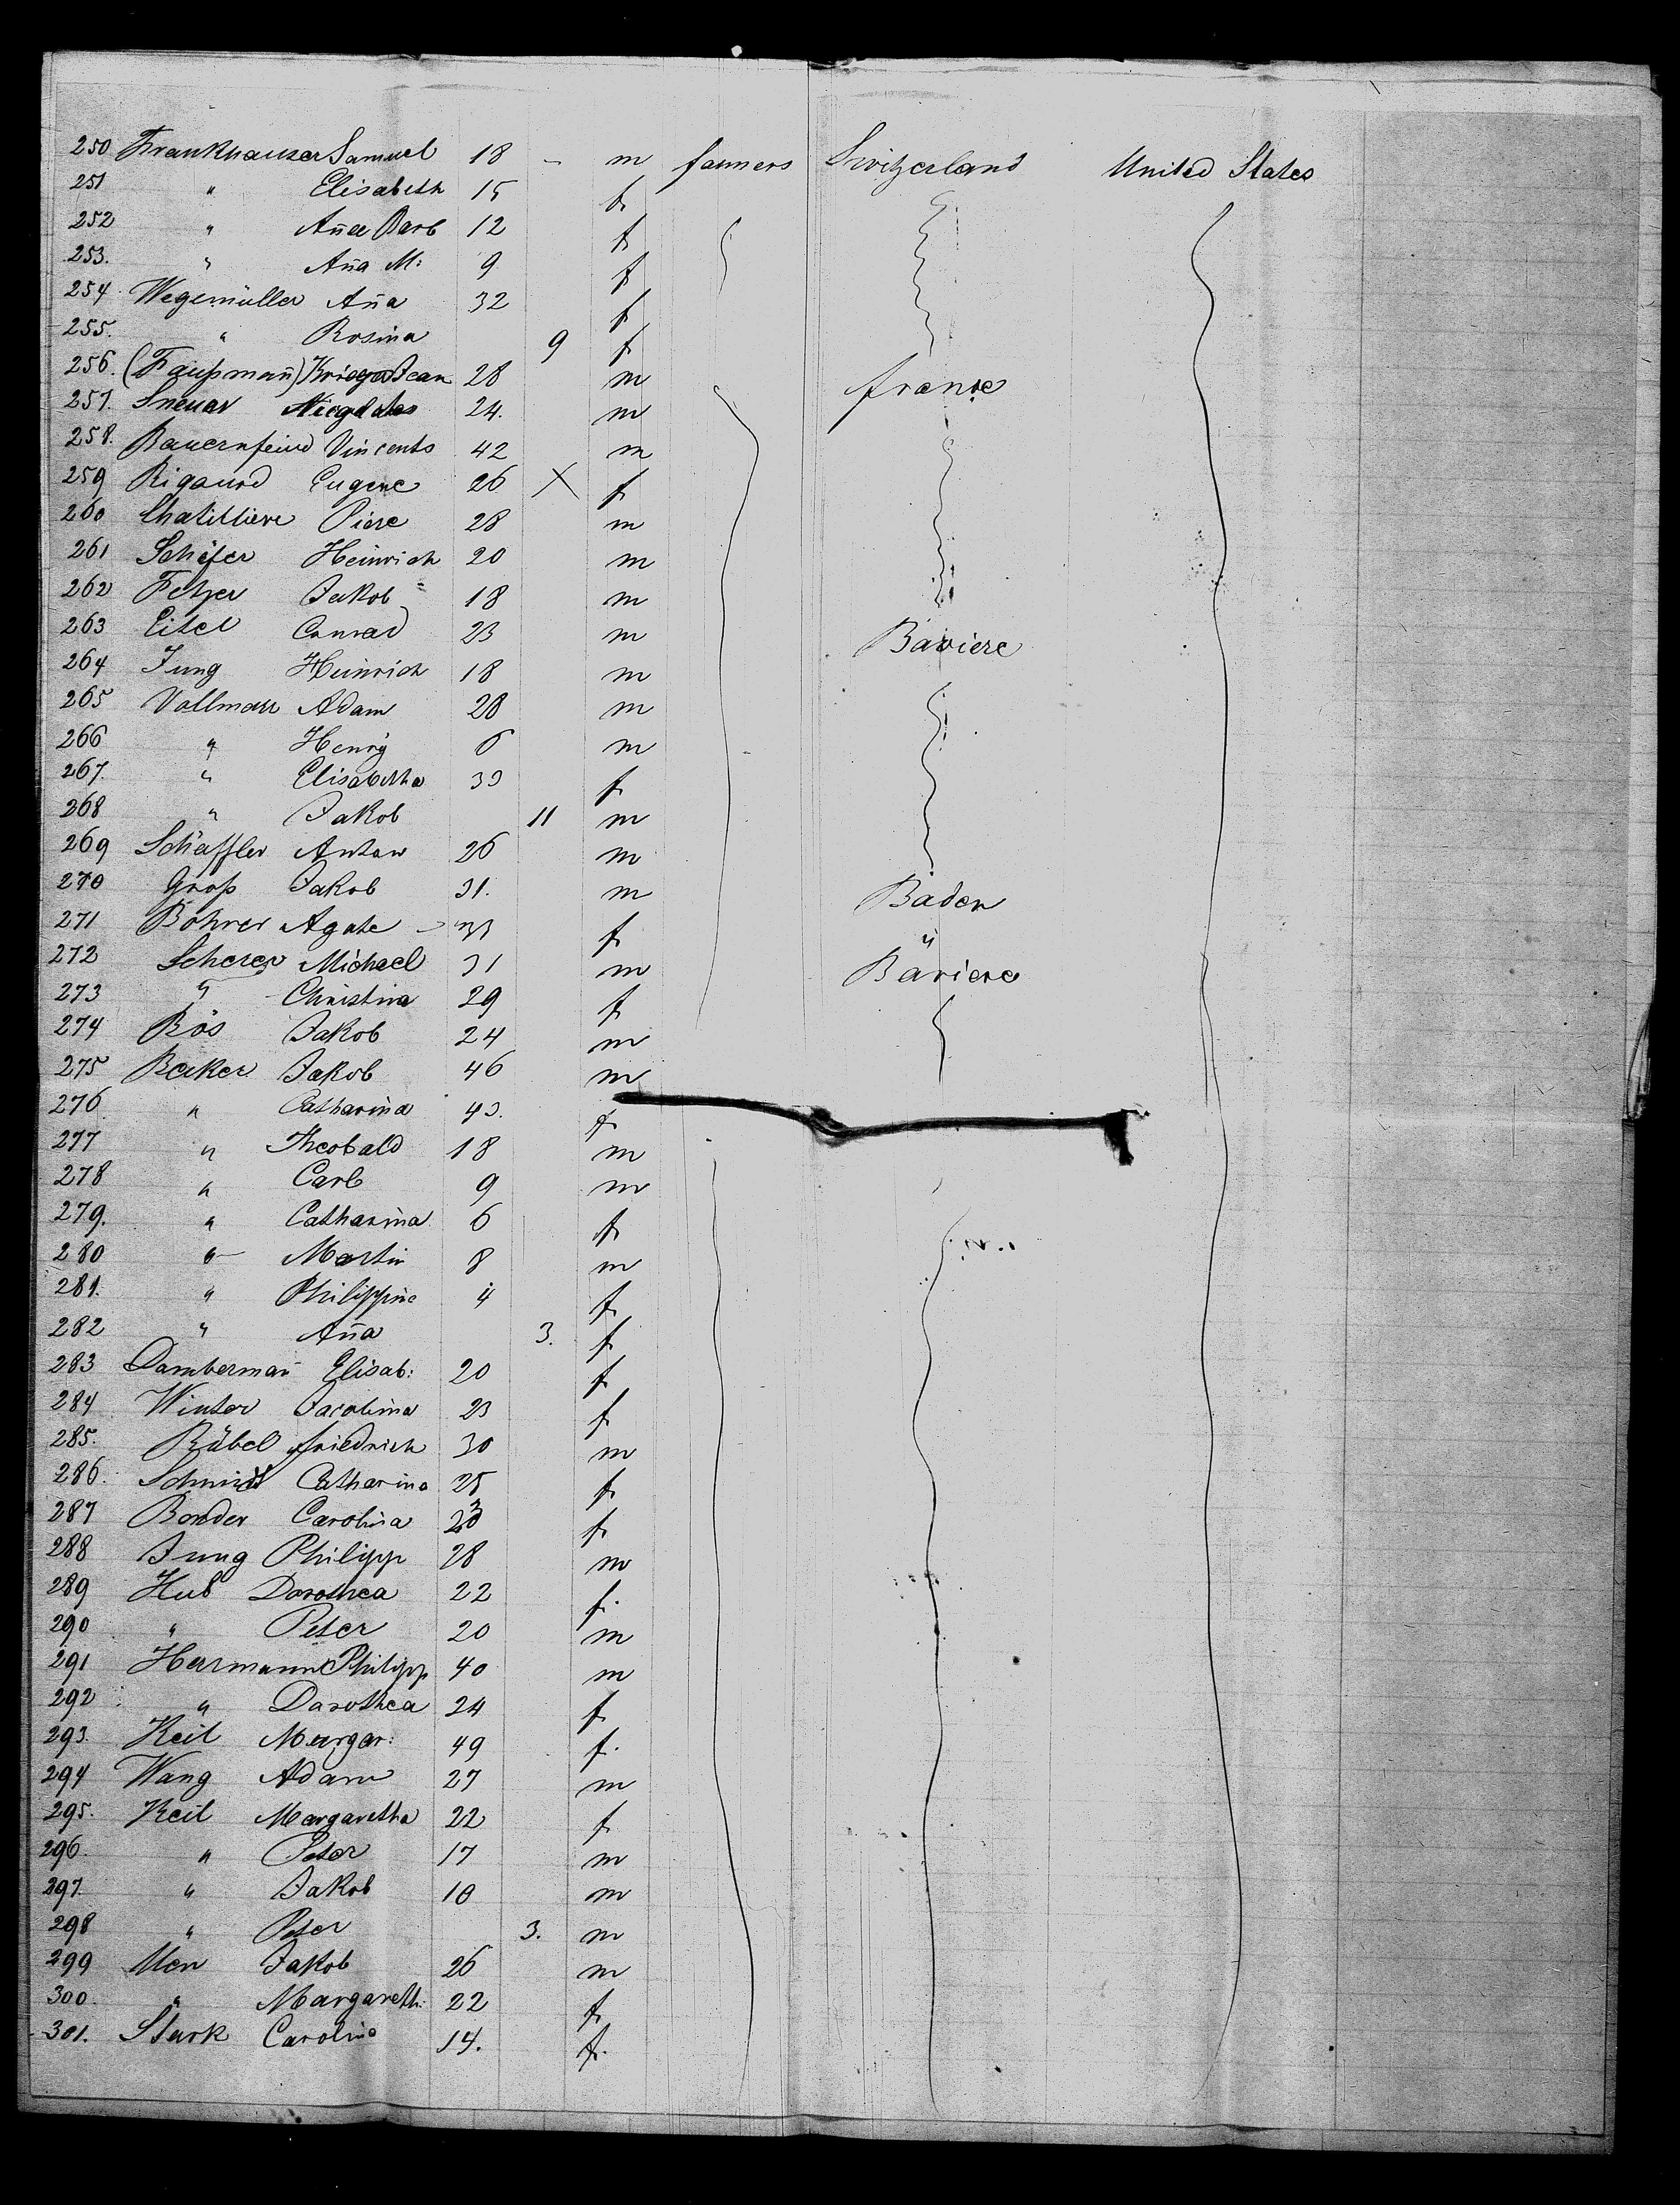 250 Frankhauser Samuel 18 - m farmers Switzerland United States
251 " Elisabeth 15 f
252 " Aña Barb 12 f
253. " Aña M: 9 f
254 Wegemüller Aña 32 f
255. " Rosina 9 f
256. (Faußmañ) Krieger Jean 28 m france
257. 24. m
258. Bauernfeind Vincents 42 m
259 Rigaurd Eugene 26 X f
260 Chatilliere Piere 28 m
261 Schäfer Heinrich 20 m
262 Fetzer Jakob 18 m
263 Eitel Conrad 23 m Baviere
264 Jung Heinrich 18 m
265 Vollmar Adam 28 m
266 " Henry 6 m
267. " Elisabetha 33 f
268 " Jakob 11 m
269 Schäffler Anton 26 m
270 Groß Jakob 31. m Baden
271 Bohrer Agate - 33 f "
272 Scherer Michael 31 m Baviere
273 " Christina 29 f
274 Bös Jakob 24 m
275 Beker Jakob 46 m
276 " Catharina 43. f
277 " Theobald 18 m
278 " Carl 9 m
279. " Catharina 6 f
280 " Martin 8 m
281. " Philippine 4 f
282 " Aña 3. f
283 Dambermañ Elisab: 20 f
284 Winter Jacobina 23 f
285. Rübel friedrich 30 m
286. Schmidt Catharina 25 f
287 Bonder Carolina f
288 Jung Philipp 28 m
289 Hub Dorothea 22 f.
290 " Peter 20 m
291 Herrmann Philipp 40 m
292 " Dorothea 24 f
293. Keil Margar: 49 f.
294 Wang Adam 27 m
295. Keil Margaretha 22 f
296. " Peter 17 m
297. " Jakob 10 m
298 " Peter 3. m
299 Jakob 26 m
300. " Margareth: 22 f
301. Stark Carolina 14. f.